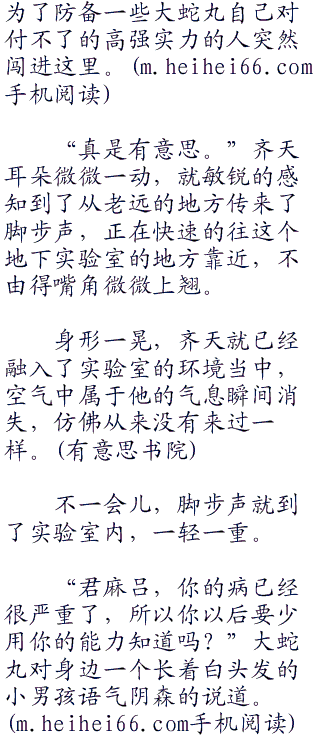 为了防备一些大蛇丸自己对
付不了的高强实力的人突然
闯进这里。(m.heihei66.com
手机阅读)
“真是有意思。”齐天
耳朵微微一动，就敏锐的感
知到了从老远的地方传来了
脚步声，正在快速的往这个
地下实验室的地方靠近，不
由得嘴角微微上翘。
身形一晃，齐天就已经
融入了实验室的环境当中，
空气中属于他的气息瞬间消
失，仿佛从来没有来过一
样。(有意思书院)
不一会儿，脚步声就到
了实验室内，一轻一重。
“君麻吕，你的病已经
很严重了，所以你以后要少
用你的能力知道吗？”大蛇
丸对身边一个长着白头发的
小男孩语气阴森的说道。
(m.heihei66.com手机阅读)